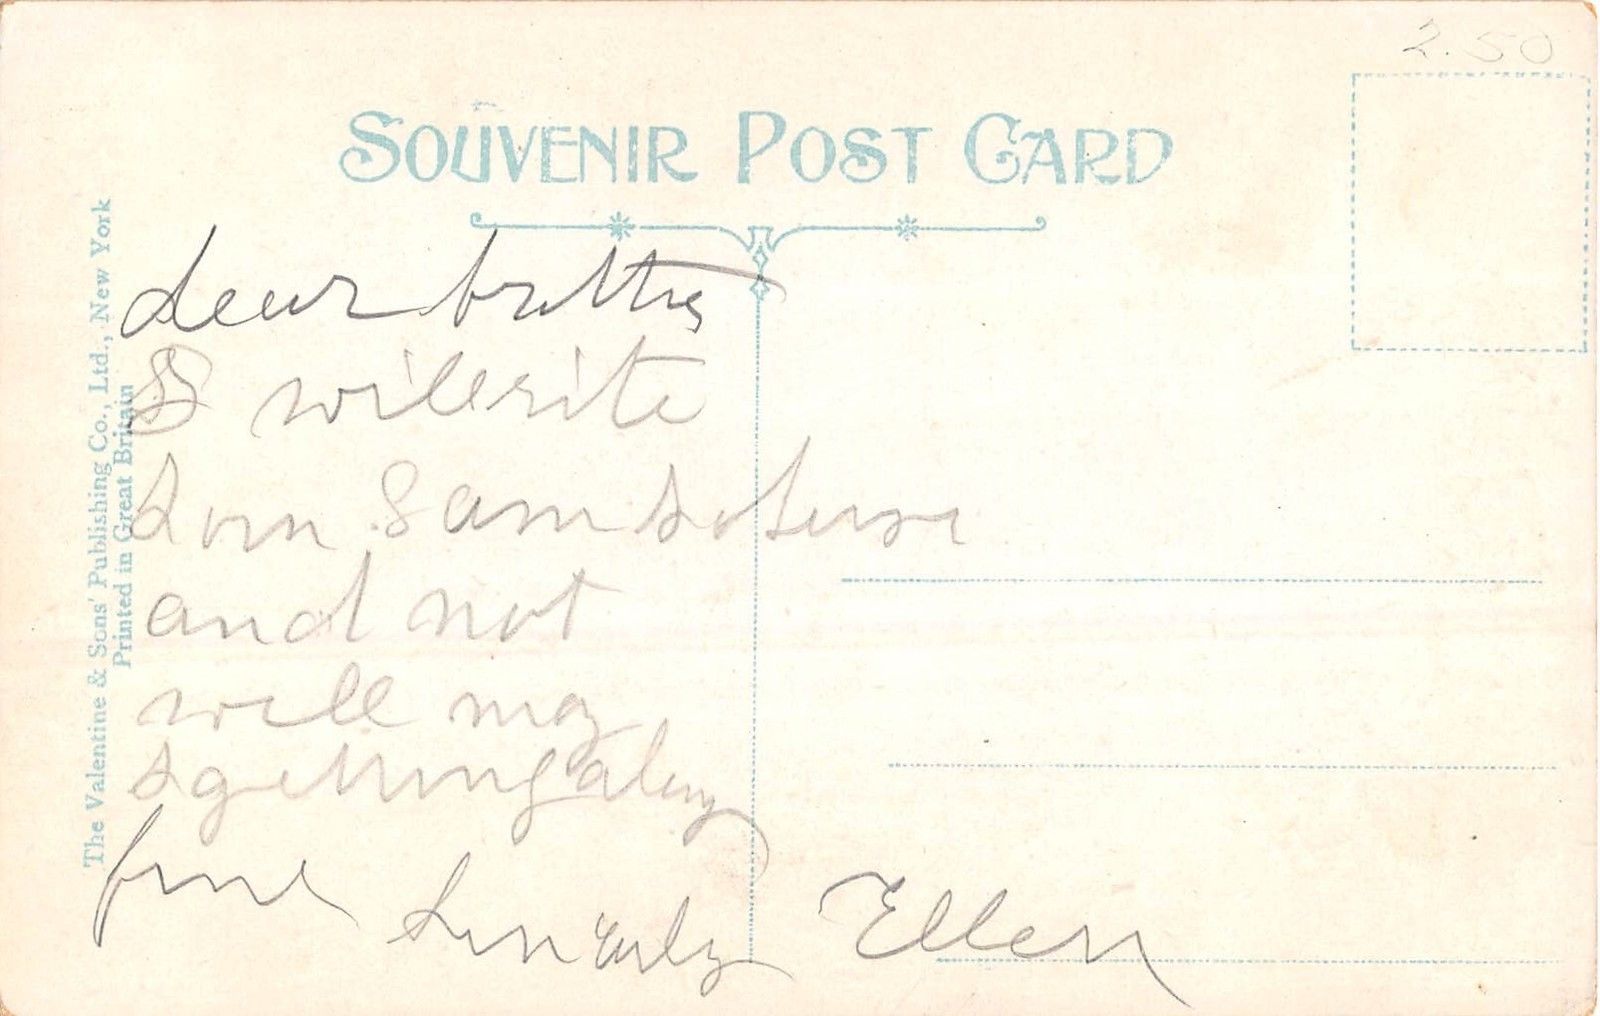 2.50
SOUVENIR POST CARD
The Valentine & Sons' Publishing Co., Ltd., New York
Printed in Great Britain
dear
I will rite
Sam
and not
will
getting along
fine
Ellen